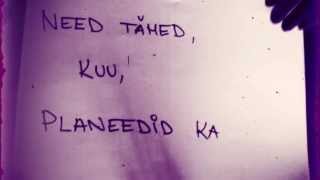 NEED TÄHED,
KUU,
PLANEEDID KA